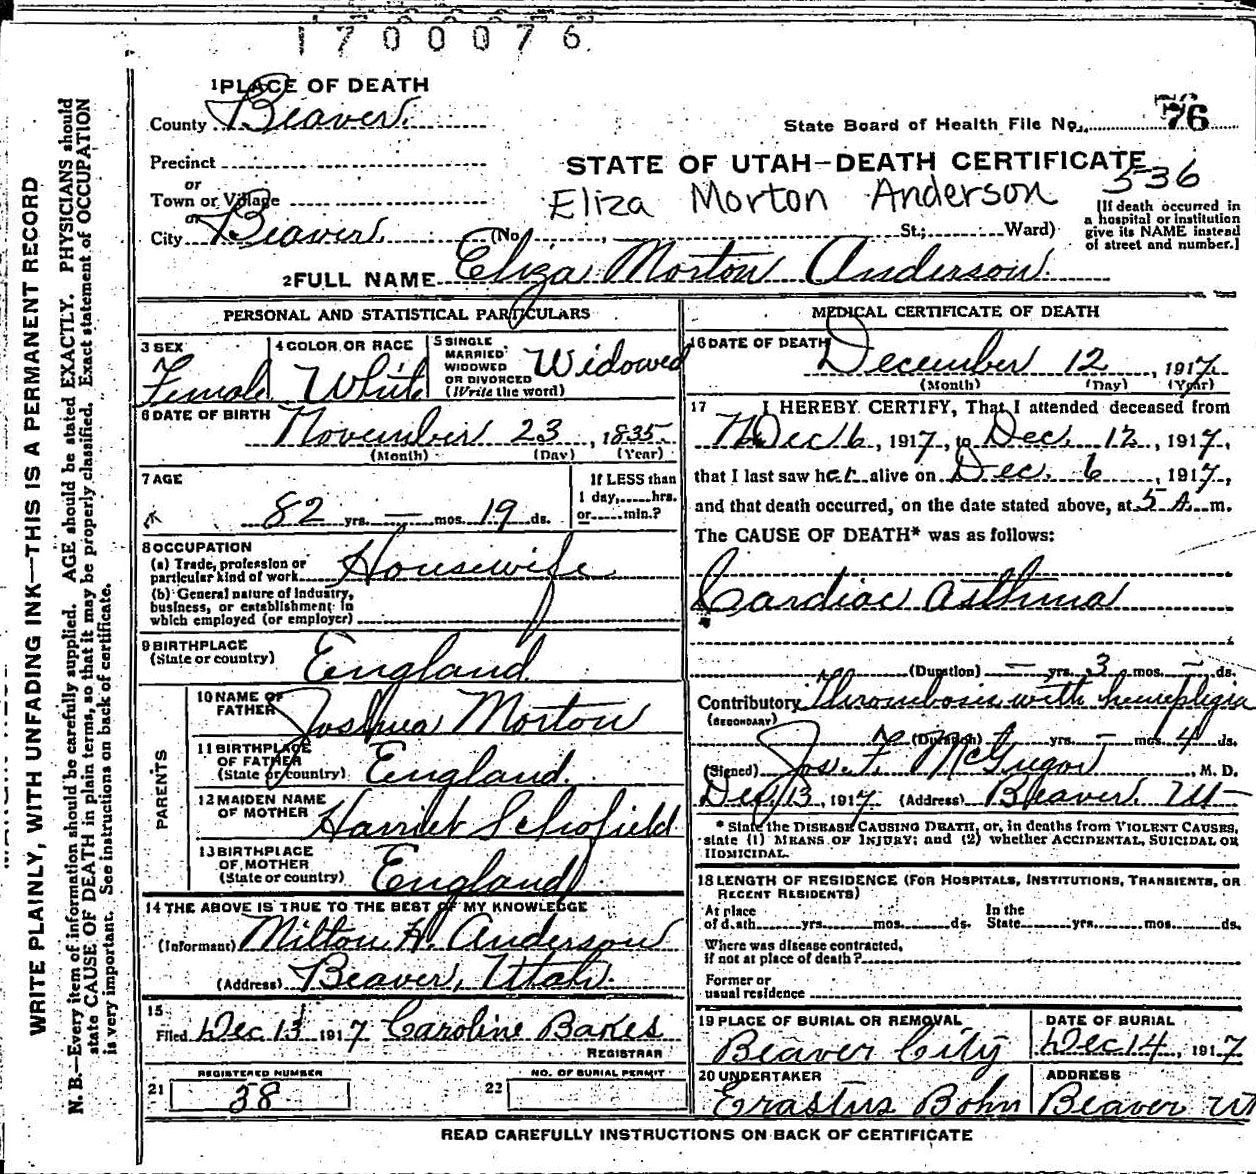 1700076
1 PLACE OF DEATH
County Beaver
State Board of Health File No. 76
Precinct
STATE OF UTAH—DEATH CERTIFICATE
536
or
Town or Village
Eliza Morton Anderson
[If death occurred in a hospital or institution give its NAME instead of street and number.]
or
City Beaver (No. , St.; Ward)
2 FULL NAME Eliza Morton Anderson
PERSONAL AND STATISTICAL PARTICULARS
3 SEX Female
4 COLOR OR RACE White
5 SINGLE, MARRIED, WIDOWED OR DIVORCED (Write the word) Widowed
6 DATE OF BIRTH November 23, 1835
(Month) (Day) (Year)
7 AGE 82 yrs. — mos. 19 ds.
If LESS than 1 day, hrs. or min.?
8 OCCUPATION
(a) Trade, profession or particular kind of work Housewife
(b) General nature of industry, business, or establishment in which employed (or employer)
9 BIRTHPLACE
(State or country) England
PARENTS
10 NAME OF FATHER Joshua Morton
11 BIRTHPLACE OF FATHER (State or country) England
12 MAIDEN NAME OF MOTHER Harriet Schofield
13 BIRTHPLACE OF MOTHER (State or country) England
14 THE ABOVE IS TRUE TO THE BEST OF MY KNOWLEDGE
(Informant) Milton H. Anderson
(Address) Beaver, Utah.
15
Filed Dec 13 1917 Caroline Bakes
REGISTRAR
21 REGISTERED NUMBER 38
22 NO. OF BURIAL PERMIT
MEDICAL CERTIFICATE OF DEATH
16 DATE OF DEATH December 12, 1917
(Month) (Day) (Year)
17 I HEREBY CERTIFY, That I attended deceased from
Dec 6, 1917, to Dec. 12, 1917,
that I last saw her alive on Dec. 6, 1917,
and that death occurred, on the date stated above, at 5 A. m.
The CAUSE OF DEATH* was as follows:
Cardiac asthma
(Duration) — yrs. 3 mos. — ds.
Contributory Thrombosis with hemiplegia
(SECONDARY)
(Duration) yrs. — mos. 4 ds.
(Signed) Jos. F. McGregor, M. D.
Dec 13, 1917 (Address) Beaver, Ut—
* State the DISEASE CAUSING DEATH, or, in deaths from VIOLENT CAUSES,
state (1) MEANS OF INJURY; and (2) whether ACCIDENTAL, SUICIDAL OR
HOMICIDAL.
18 LENGTH OF RESIDENCE (FOR HOSPITALS, INSTITUTIONS, TRANSIENTS, OR
RECENT RESIDENTS)
At place of death yrs. mos. ds. In the State yrs. mos. ds.
Where was disease contracted,
if not at place of death?
Former or
usual residence
19 PLACE OF BURIAL OR REMOVAL Beaver City
DATE OF BURIAL Dec 14, 1917
20 UNDERTAKER Erastus Bohn
ADDRESS Beaver Ut
READ CAREFULLY INSTRUCTIONS ON BACK OF CERTIFICATE
WRITE PLAINLY, WITH UNFADING INK—THIS IS A PERMANENT RECORD
N. B.—Every item of information should be carefully supplied. AGE should be stated EXACTLY. PHYSICIANS should
state CAUSE OF DEATH in plain terms, so that it may be properly classified. Exact statement of OCCUPATION
is very important. See instructions on back of certificate.